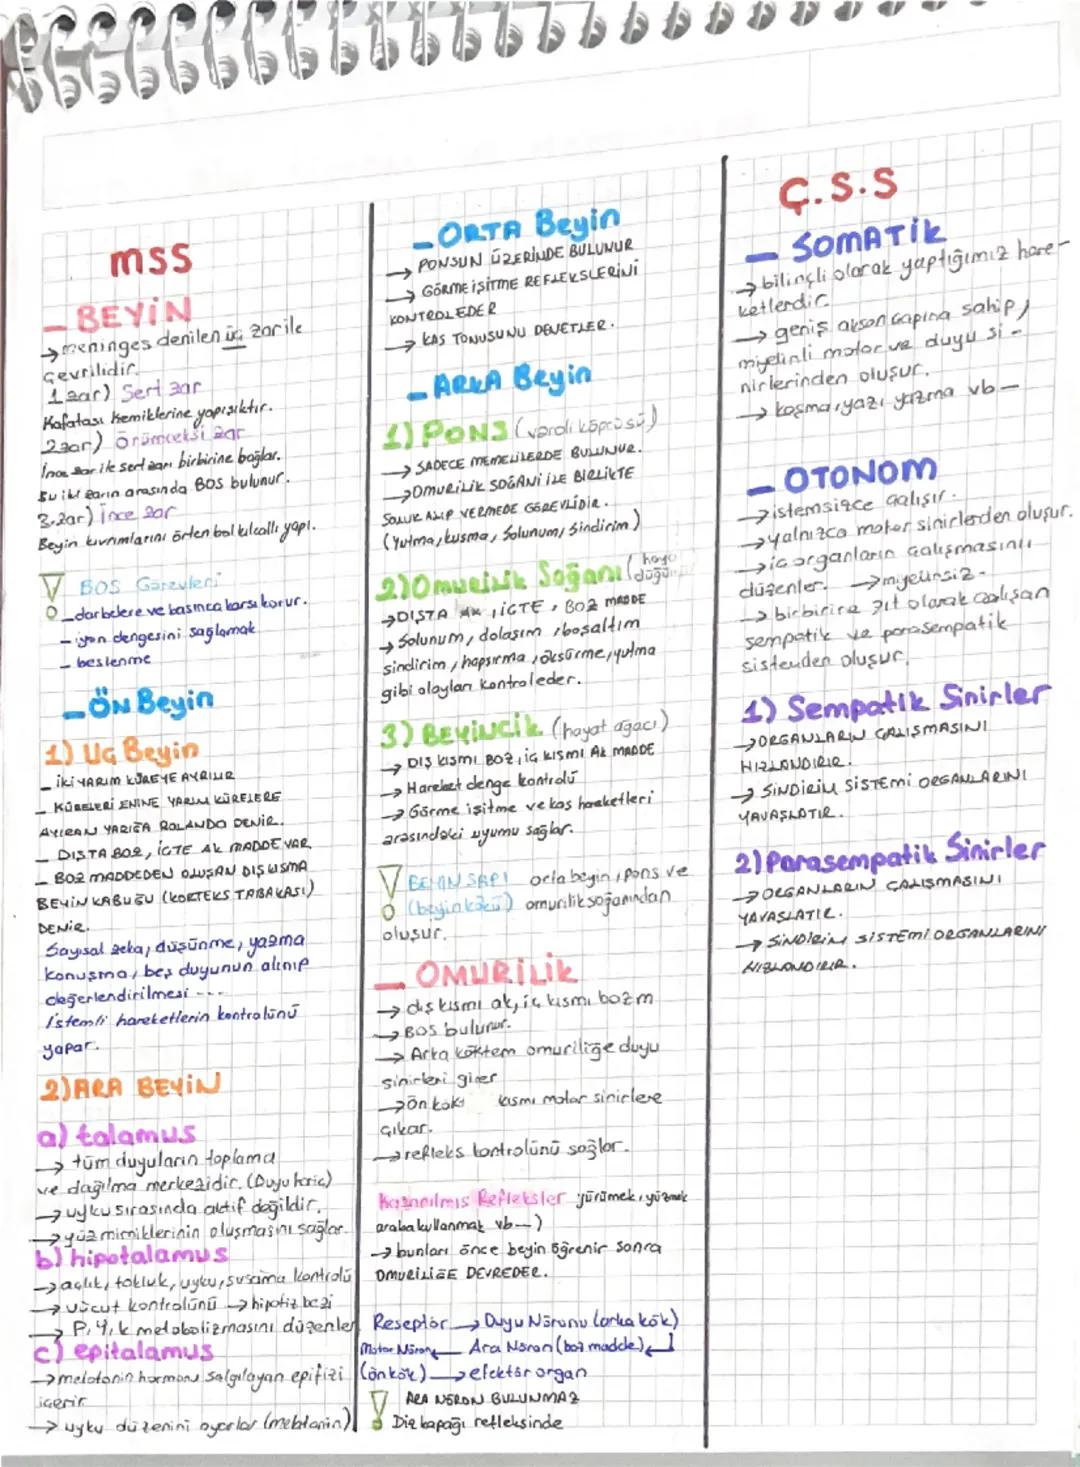 mss
- BEYİN
→ meninges denilen üç zar ile
çevrilidir.
1.zar) Sert zar
Kafatası kemiklerine yapışıktır.
2.zar) Örümceksi zar
İnce zar ile sert zarı birbirine bağlar.
Bu iki zarın arasında BOS bulunur.
3.zar) İnce zar
Beyin kıvrımlarını örten bol kılcallı yapı.
! BOS Görevleri
- darbelere ve basınca karşı korur.
- iyon dengesini sağlamak
- beslenme
- ÖN Beyin
1) Uç Beyin
- İKİ YARIM KÜREYE AYRILIR
- KÜRELERİ ENİNE YARIM KÜRELERE
AYIRAN YARIĞA ROLANDO DENİR.
- DIŞTA BOZ, İÇTE AK MADDE VAR
- BOZ MADDEDEN OLUŞAN DIŞ KISMA
BEYİN KABUĞU (KORTEKS TABAKASI)
DENİR.
Sayısal zeka, düşünme, yazma
konuşma, beş duyunun alınıp
değerlendirilmesi ---
İstemli hareketlerin kontrolünü
yapar.
2) ARA BEYİN
a) talamus
→ tüm duyuların toplama
ve dağılma merkezidir. (Duyu hariç)
→ uyku sırasında aktif değildir.
→ yüz mimiklerinin oluşmasını sağlar.
b) hipotalamus
→ açlık, tokluk, uyku, susama kontrolü
→ vücut kontrolünü → hipofiz bezi
→ P, Y, k metabolizmasını düzenler
c) epitalamus
→ melatonin hormonu salgılayan epifizi
içerir
→ uyku düzenini ayarlar (melatonin)
- ORTA Beyin
→ PONSUN ÜZERİNDE BULUNUR
→ GÖRME İŞİTME REFLEKSLERİNİ
KONTROL EDER
→ KAS TONUSUNU DENETLER.
- ARKA Beyin
1) PONS (varoli köprüsü)
→ SADECE MEMELİLERDE BULUNUR.
→ OMURİLİK SOĞANI İLE BİRLİKTE
SOLUK ALIP VERMEDE GÖREVLİDİR.
(Yutma, kusma, Solunum, Sindirim)
2) Omurilik Soğanı (haya
düğüm
→ DIŞTA AK İÇTE, BOZ MADDE
→ Solunum, dolaşım, boşaltım
sindirim, hapşırma, öksürme, yutma
gibi olayları kontrol eder.
3) BEYİNCİK (hayat ağacı)
→ DIŞ KISMI BOZ, İÇ KISMI AK MADDE
→ Hareket denge kontrolü
→ Görme işitme ve kas hareketleri
arasındaki uyumu sağlar.
! BEYİN SAPI orta beyin, pons ve
(beyin kökü) omurilik soğanından
oluşur.
- OMURİLİK
→ dış kısmı ak, iç kısmı boz m
→ BOS bulunur.
→ Arka kökten omuriliğe duyu
sinirleri girer
→ ön kök kısmı motor sinirlere
çıkar.
→ refleks kontrolünü sağlar.
Kazanılmış Refleksler yürümek, yüzmek
araba kullanmak vb--)
→ bunları önce beyin öğrenir sonra
OMURİLİĞE DEVREDER.
Reseptör → Duyu Nöronu (arka kök)
Motor Nöron ← Ara Nöron (boz madde) ↲
(ön kök) → efektör organ
! ARA NÖRON BULUNMAZ
Diz kapağı refleksinde
Ç.S.S
- SOMATİK
→ bilinçli olarak yaptığımız hare-
ketlerdir.
→ geniş akson çapına sahip,
miyelinli motor ve duyu si-
nirlerinden oluşur.
→ koşma, yazı yazma vb--
- OTONOM
→ istemsizce çalışır.
→ yalnızca motor sinirlerden oluşur.
→ iç organların çalışmasını
düzenler. → miyelinsiz.
→ birbirine zıt olarak çalışan
sempatik ve parasempatik
sistemden oluşur.
1) Sempatik Sinirler
→ ORGANLARIN ÇALIŞMASINI
HIZLANDIRIR.
→ SİNDİRİM SİSTEMİ ORGANLARINI
YAVAŞLATIR.
2) Parasempatik Sinirler
→ ORGANLARIN ÇALIŞMASINI
YAVAŞLATIR.
→ SİNDİRİM SİSTEMİ ORGANLARINI
HIZLANDIRIR.